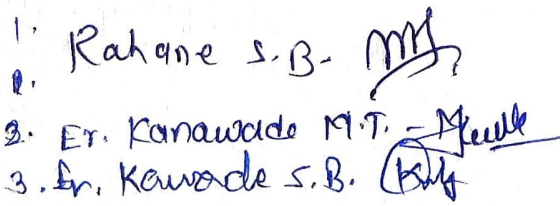 1. Rahane S.B.
2.
2. Er. Kanawade M.T. -
3. Er. Kawade S.B.